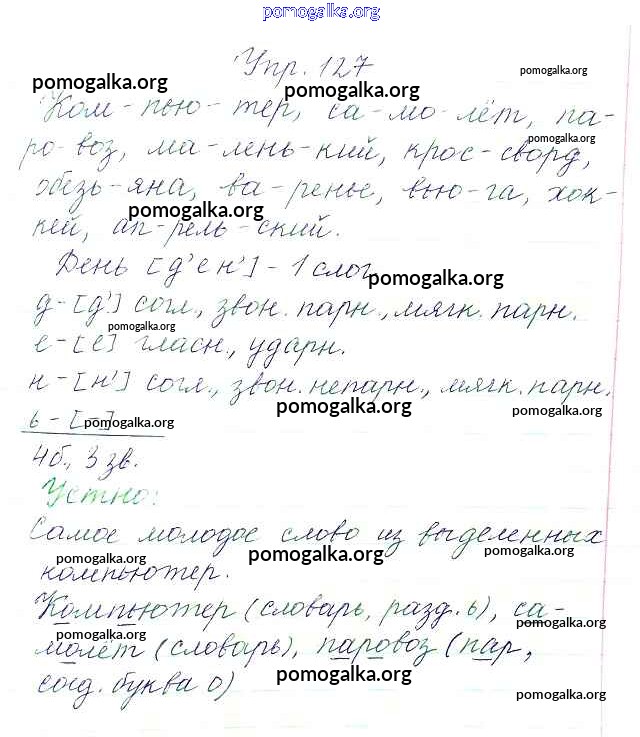 pomogalka.org
Упр. 127
pomogalka.org
pomogalka.org
pomogalka.org
Ком-пью-тер, са-мо-лёт, па-
pomogalka.org
ро-воз, ма-лень-кий, крос-сворд,
обезь-яна, ва-ренье, вью-га, хок-
pomogalka.org
кей, ап-рель-ский.
День [д'ен'] - 1 слог
pomogalka.org
д-[д'] согл., звон. парн., мягк. парн.
pomogalka.org
е-[е] гласн., ударн.
н-[н'] согл., звон. непарн., мягк. парн.
pomogalka.org
pomogalka.org
ь-[-]
pomogalka.org
4б., 3 зв.
Устно:
Самое молодое слово из выделенных
pomogalka.org
pomogalka.org
pomogalka.org
компьютер.
Компьютер (словарь, разд. ь), са-
pomogalka.org
pomogalka.org
молёт (словарь), паровоз (пар,
pomogalka.org
соед. буква о)
pomogalka.org